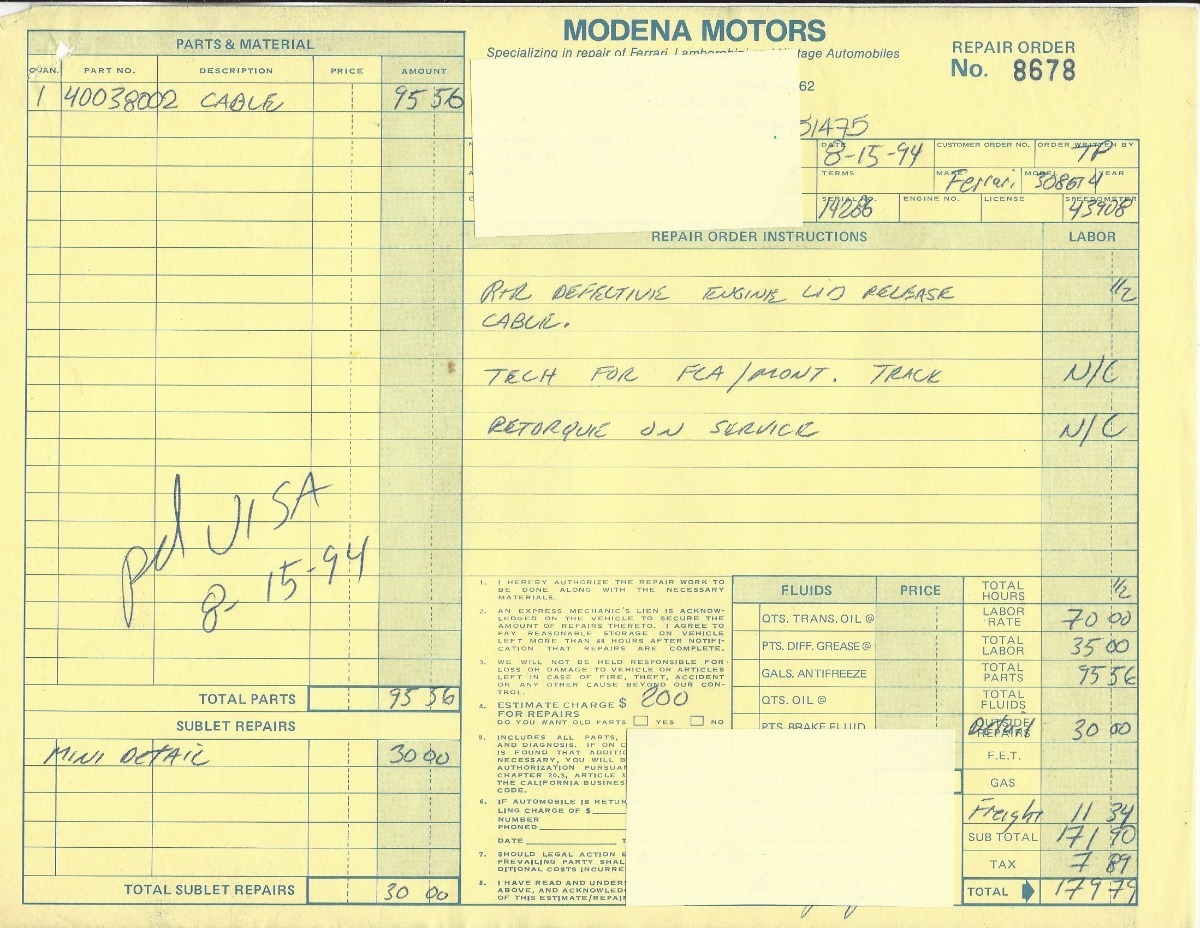 MODENA MOTORS
Specializing in repair of Ferrari, Lamborghini tage Automobiles
62
REPAIR ORDER
No. 8678
51475
PARTS & MATERIAL
QUAN. PART NO. DESCRIPTION PRICE AMOUNT
1 40038002 CABLE 95 56
pd VISA
8-15-94
TOTAL PARTS 95 56
SUBLET REPAIRS
MINI DETAIL 30 00
TOTAL SUBLET REPAIRS 30 00
DATE 8-15-94 CUSTOMER ORDER NO. ORDER WRITTEN BY TP
TERMS MAKE Ferrari MODEL 308GT4 YEAR
SERIAL NO. 14286 ENGINE NO. LICENSE SPEEDOMETER 43908
REPAIR ORDER INSTRUCTIONS LABOR
R+R DEFECTIVE ENGINE LID RELEASE 1/2
CABLE.
TECH FOR FCA/MONT. TRACK N/C
RETORQUE ON SERVICE N/C
1. I HEREBY AUTHORIZE THE REPAIR WORK TO
BE DONE ALONG WITH THE NECESSARY
MATERIALS.
2. AN EXPRESS MECHANIC'S LIEN IS ACKNOW-
LEDGED ON THE VEHICLE TO SECURE THE
AMOUNT OF REPAIRS THERETO. I AGREE TO
PAY REASONABLE STORAGE ON VEHICLE
LEFT MORE THAN 48 HOURS AFTER NOTIFI-
CATION THAT REPAIRS ARE COMPLETE.
3. WE WILL NOT BE HELD RESPONSIBLE FOR
LOSS OR DAMAGE TO VEHICLE OR ARTICLES
LEFT IN CASE OF FIRE, THEFT, ACCIDENT
OR ANY OTHER CAUSE BEYOND OUR CON-
TROL.
4. ESTIMATE CHARGE $ 200
FOR REPAIRS
DO YOU WANT OLD PARTS YES NO
5. INCLUDES ALL PARTS,
AND DIAGNOSIS. IF ON C
IS FOUND THAT ADDITIO
NECESSARY, YOU WILL B
AUTHORIZATION PURSUA
CHAPTER 20.3, ARTICLE 3
THE CALIFORNIA BUSINES
CODE.
6. IF AUTOMOBILE IS RETUR
LING CHARGE OF $
NUMBER
PHONED
DATE T
7. SHOULD LEGAL ACTION B
PREVAILING PARTY SHAL
DITIONAL COSTS INCURRE
8. I HAVE READ AND UNDERS
ABOVE, AND ACKNOWLEDG
OF THIS ESTIMATE/REPAIR
FLUIDS PRICE
QTS. TRANS. OIL @
PTS. DIFF. GREASE @
GALS. ANTIFREEZE
QTS. OIL @
PTS. BRAKE FLUID
TOTAL HOURS 1/2
LABOR RATE 70 00
TOTAL LABOR 35 00
TOTAL PARTS 95 56
TOTAL FLUIDS
OUTSIDE REPAIRS 30 00
F.E.T.
GAS
Freight 11 34
SUB TOTAL 171 90
TAX 7 89
TOTAL 179 79